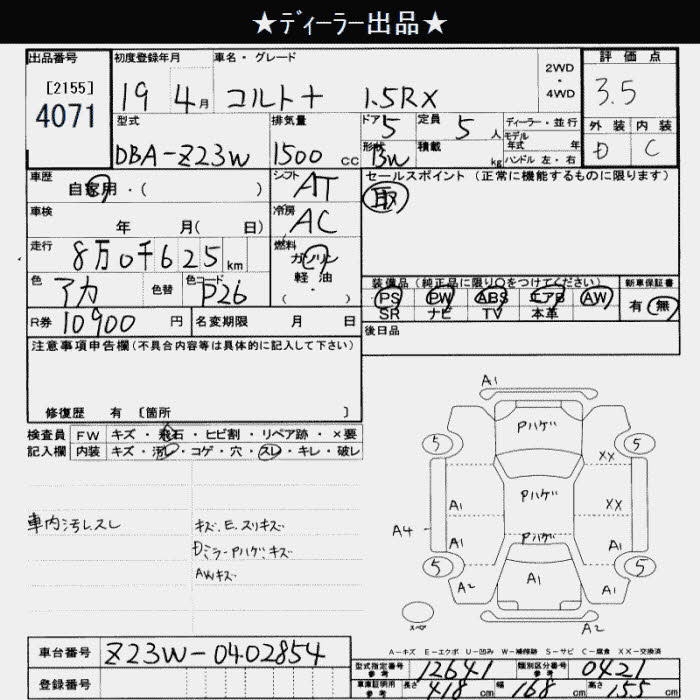 ★ディーラー出品★
出品番号
[2155]
4071
初度登録年月
19 4月
車名・グレード
コルト+ 1.5RX
2WD・4WD
評価点
3.5
外装 内装
D C
型式
DBA-Z23W
排気量
1500 cc
ドア 5
形状 BW
定員 5 人
積載 kg
ディーラー・並行
モデル年式 年
ハンドル 左・右
車歴
自家用・( )
シフト
AT
セールスポイント (正常に機能するものに限ります)
取
車検
年 月( 日)
冷房
AC
走行
8万0千625km
燃料
ガソリン
軽・油
( ・ )
色
アカ
色替
色コード
P26
装備品(純正品に限り○をつけてください)
PS PW ABS エアB AW
SR ナビ TV 本革
新車保証書
有・無
R券 10900円
名変期限 月 日
後日品
注意事項申告欄(不具合内容等は具体的に記入して下さい)
修復歴 有 〔箇所 〕
検査員記入欄
FW キズ・飛石・ヒビ割・リペア跡・×要
内装 キズ・汚レ・コゲ・穴・スレ・キレ・破レ
車内汚レスレ
キズ.E.スリキズ
DミラーPハゲキズ
AWキズ
A1
Pハゲ
5
5
XX
Pハゲ
A1
XX
A4
Pハゲ
A1
A1
5
5
A2
A1
A1
スペア
A2
A-キズ E-エクボ U-凹み W-補修跡 S-サビ C-腐食 XX-交換済
車台番号
Z23W-0402854
登録番号
型式指定番号 参考
12641
類別区分番号 参考
0421
車庫証明用 参考
長さ 418 cm
幅 168 cm
高さ 155 cm